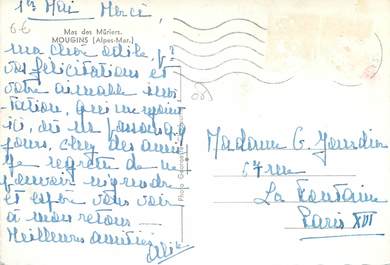 6€
1er Mai Merci
Mas des Mûriers.
MOUGINS (Alpes-Mar.)
ma chère Odile, pr
vos félicitations et
votre aimable invi-
tation, qui me
ici, où je passe qq
jours, chez des amis
Je regrette de ne
pouvoir répondre
et espère vous voir
à mon retour
Meilleures amitiés
Madame G. Jourdin
57 rue
La Fontaine
Paris XVI